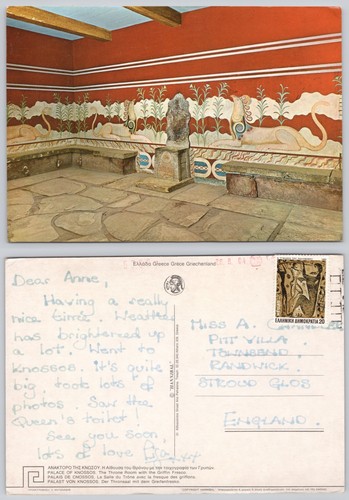 Ελλάδα Greece Grèce Griechenland
Dear Anne,
Having a really
nice time. Weather
has brightened up
a lot. Went to
Knossos. It's quite
big took lots of
photos. Saw the
Queen's toilet!
See you soon,
lots of love
ΕΛΛΗΝΙΚΗ ΔΗΜΟΚΡΑΤΙΑ 20
Miss A.
Pitt Villa
Townsend
Randwick
Stroud Glos
England.
ΑΝΑΚΤΟΡΟ ΤΗΣ ΚΝΩΣΟΥ. Η Αίθουσα του Θρόνου με την τοιχογραφία των Γρυπών.
PALACE OF KNOSSOS. The Throne Room with the Griffin Fresco.
PALAIS DE CNOSSOS. La Salle du Trône avec la fresque des griffons.
PALAST VON KNOSSOS. Der Thronsaal mit dem Greifenfresko.